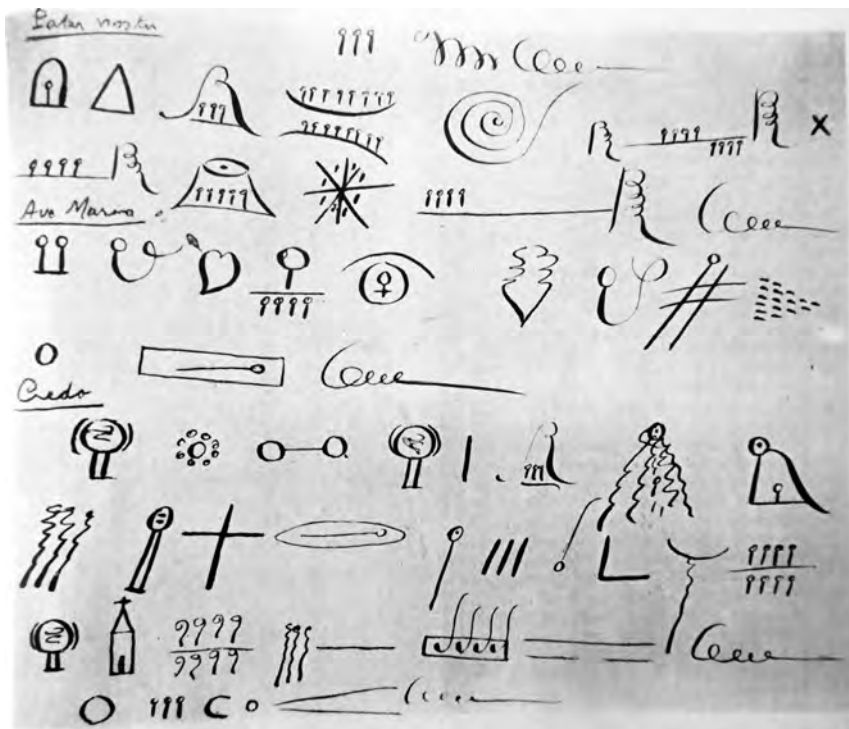 Pater noster
Ave Maria
Credo